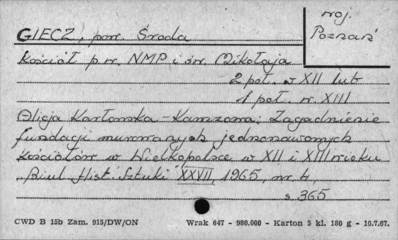 GIECZ, pow. Środa
woj.
Poznań
Kościół p.w. NMP i św. Mikołaja
2 poł. w XII lub
1 poł. w. XIII
Alicja Karłowska-Kamzowa: Zagadnienie
fundacji murowanych jednonawowych
kościołów w Wielkopolsce w XII i XIII wieku
Biul. Hist. Sztuki XXVII, 1965, nr. 4
s. 365
CWD B 15b Zam. 915/DW/ON Wrak 647 - 960.000 - Karton 3 kl. 180 g - 10.7.67.